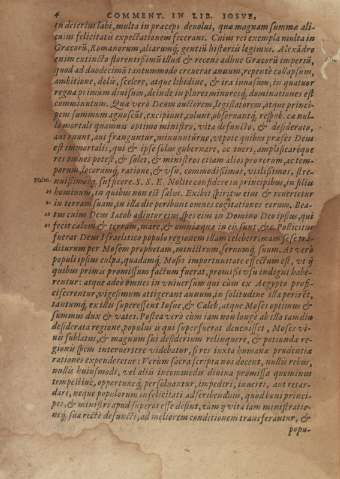 4 COMMENT. IN LIB. IOSVE,
in deterius labi, multa in præceps devolui, quæ magnam summæ ali-
cuius felicitatis expectationem fecerant. Cuius rei exempla multa in
Græcorū, Romanorum, aliarumq́; gentiū historiis legimus. Alexādro
enim extincto florentissimū illud & recens adhuc Græcorū imperiū,
quod ad duodecimū tantummodo creuerat annum, repente collapsum,
ambitione, dolo, scelere, atque libidine, & ita divisum, in quatuor
regna primum divisum, deinde in plures minoresq́; dominationes est
comminutum. Qua verò Deum auctorem, legislatorem, atque princi-
pem summum agnoscūt, excipiunt, colunt, observantq́; resp. ca nul-
lo mortali quamvis optimo ministro, vita defuncto, & desiderato,
aut ruunt, aut franguntur, minuuntúrve, utpote quibus præses Deus
est immortalis, qui & ipse solus gubernare, ac tueri, amplificaréque
res omnes potest, & solet, & ministros etiam alios pro rerum, ac tem-
porum, locorumq́; ratione, & usu, commodissimos, utilissimos, stre-
nuissimosq́; sufficere. Nolite confidere in principibus, in filiis
hominum, in quibus non est salus. Exibit spiritus eius & revertetur
in terram suam, in illa die peribunt omnes cogitationes eorum. Bea-
tus cuius Deus Iacob adiutor eius, spes eius in Domino Deo ipsius, qui
fecit cælum & terram, mare, & omnia quæ in eis sunt, &c. Pollicitus
fuerat Deus Israëlitico populo regionem illam liberè in eam se tra-
diturum per Mosem prophetam, ministrum, servumq́; suum. At verò
populi ipsius culpa, quadamq́; Mosis importunitate effectum est, ut ij
quibus primùm promissum factum fuerat, promissi usu indigni habe-
rentur: atque adeò omnes in universum qui cùm ex Aegypto profi-
ciscerentur, vigesimum attigerant annum, in solitudine illa perirēt,
tantumq́; ex illis superessent Iosue & Caleb, atque Moses optimus &
summus dux & vates. Postea verò cùm iam non longè ab illa tamdiu
desiderata regione, populus is qui superfuerat devenisset, Moses vi-
vis sublatus, & magnum sui desiderium relinquere, & potiundæ re-
gionis spem intervertere videbatur, si res iuxta humanæ prudentiæ
rationes expenderetur: Verùm sacra scripta nos docent, nullis rebus,
nullis huiusmodi, vel aliis incommodis divina promissa quominus
tempestivè, opportunéq́; persolvantur, impediri, inverti, aut retar-
dari, neque populorum infelicitati adscribendum, quòd boni princi-
pes, & ministri apud superos esse desint, tum q̀ vita iam ministratio-
neq́; sua rectè defuncti, ad meliorem conditionem transferantur, &
popu-